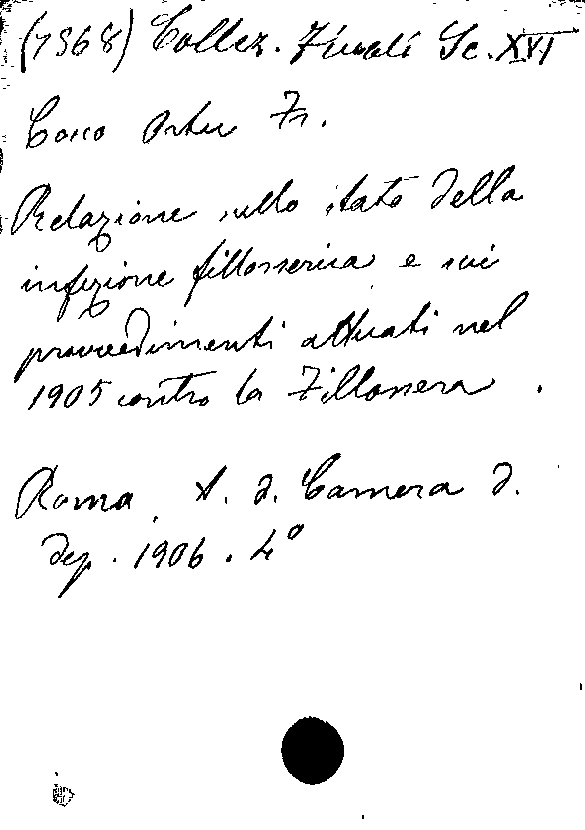 (7368) Collez. Zurali Sc. XVI
Cocco Ortu Fr.
Relazione sullo stato della
infezione fillosserica e sui
provvedimenti attuati nel
1905 contro la Fillossera .
Roma . T. d. Camera d.
dep. 1906 . 4º